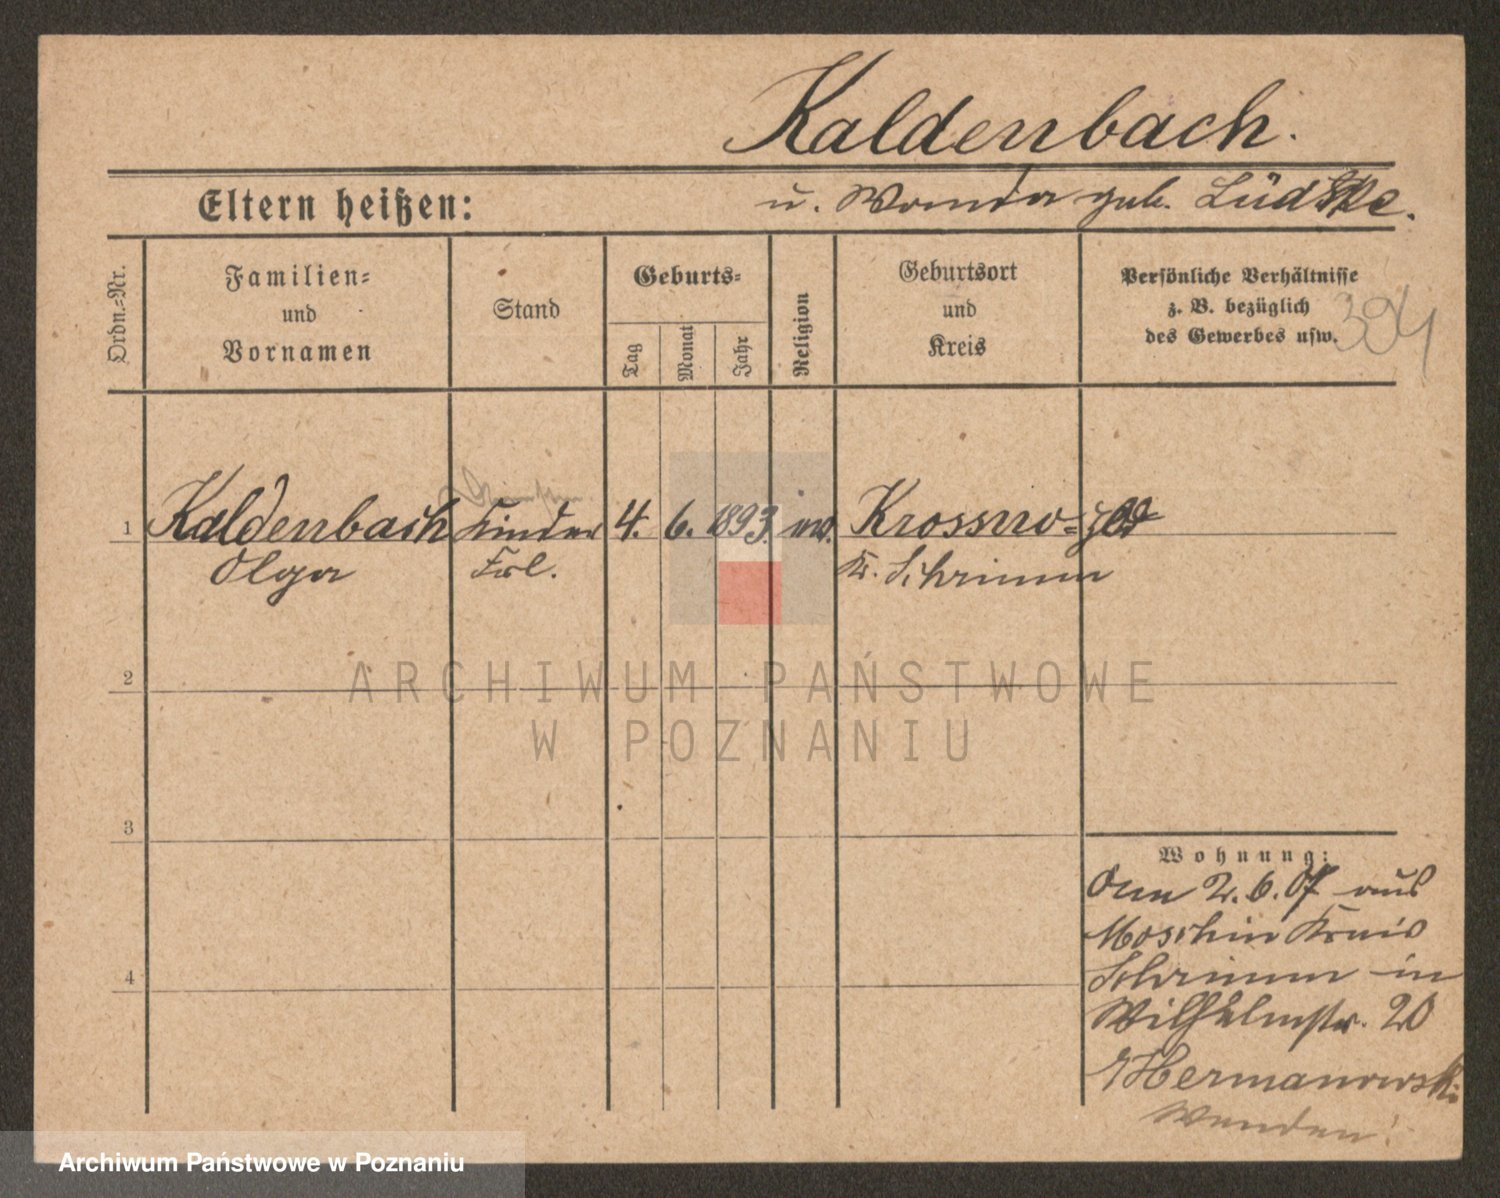 Kaldenbach.
Eltern heißen:
u. Wanda geb. Lüdtke.
Ordn.-Nr.
Familien-
und
Vornamen
Stand
Geburts-
Tag
Monat
Jahr
Religion
Geburtsort
und
Kreis
Persönliche Verhältnisse
z. B. bezüglich
des Gewerbes usw.
394
1
Kaldenbach
Olga
Kinder
Frl.
4. 6. 1893.
ev.
Krossno-
Kr. Schrimm
2
3
4
Wohnung:
Am 2.6.07 aus
Moschin Kreis
Schrimm in
Wilhelmstr. 20
Hermanowski
Wenden!
ARCHIWUM PAŃSTWOWE
W POZNANIU
Archiwum Państwowe w Poznaniu